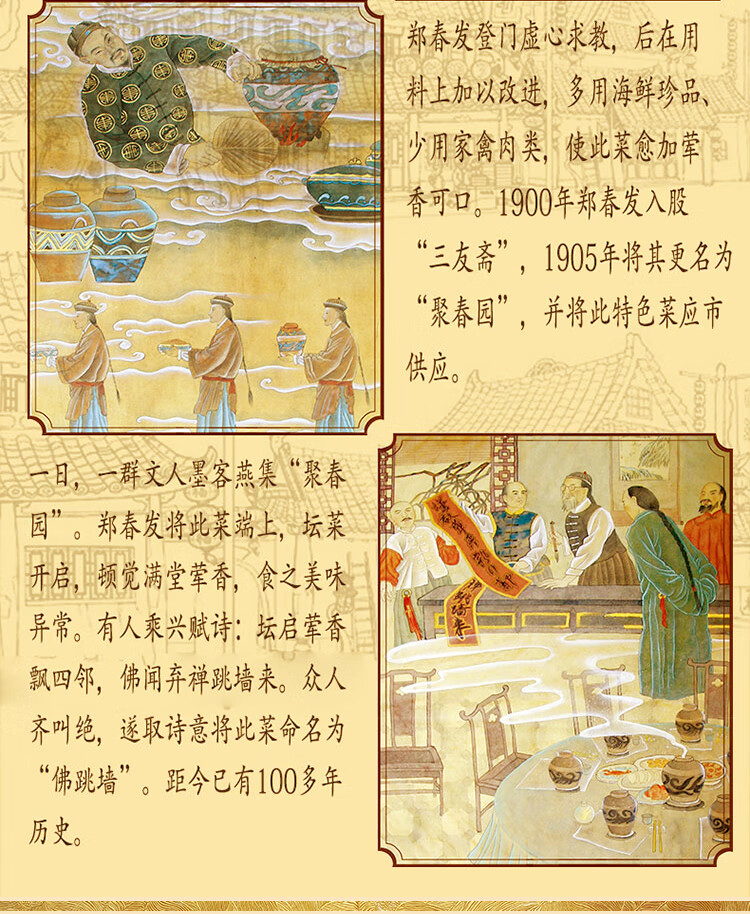 郑春发登门虚心求教，后在用
料上加以改进，多用海鲜珍品、
少用家禽肉类，使此菜愈加荤
香可口。1900年郑春发入股
“三友斋”，1905年将其更名为
“聚春园”，并将此特色菜应市
供应。
一日，一群文人墨客燕集“聚春
园”。郑春发将此菜端上，坛菜
开启，顿觉满堂荤香，食之美味
异常。有人乘兴赋诗：坛启荤香
飘四邻，佛闻弃禅跳墙来。众人
齐叫绝，遂取诗意将此菜命名为
“佛跳墙”。距今已有100多年
历史。